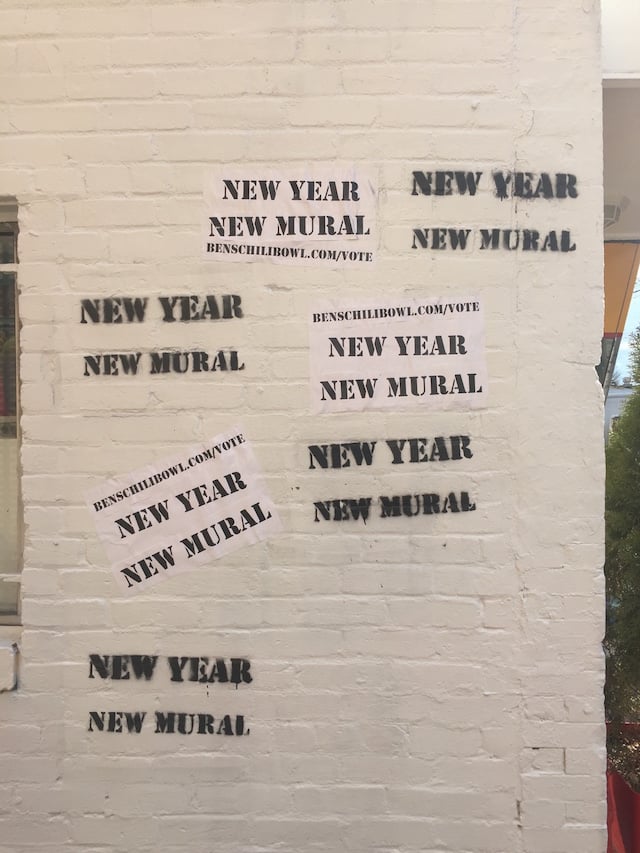 NEW YEAR
NEW MURAL
BENSCHILIBOWL.COM/VOTE
NEW YEAR
NEW MURAL
NEW YEAR
NEW MURAL
BENSCHILIBOWL.COM/VOTE
NEW YEAR
NEW MURAL
BENSCHILIBOWL.COM/VOTE
NEW YEAR
NEW MURAL
NEW YEAR
NEW MURAL
NEW YEAR
NEW MURAL